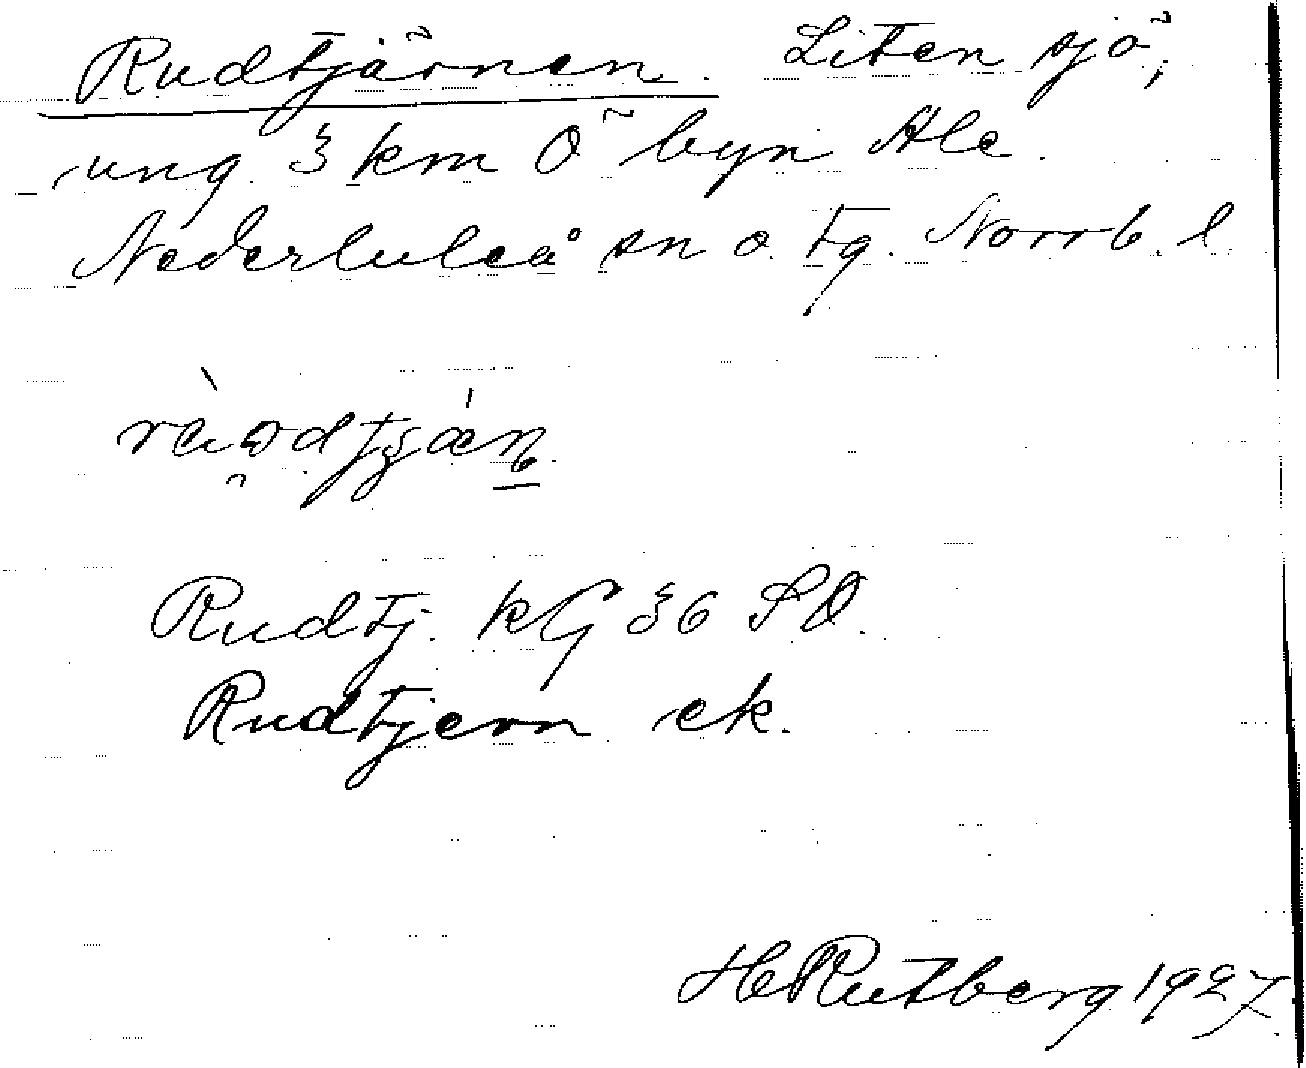 Rudtjärnen. Liten sjö,
ung. 3 km Ö byn Ale.
Nederluleå sn o. tg. Norrb. l.
Rudtj. kG 36 SO.
Rudtjern ek.
H Rutberg 1927